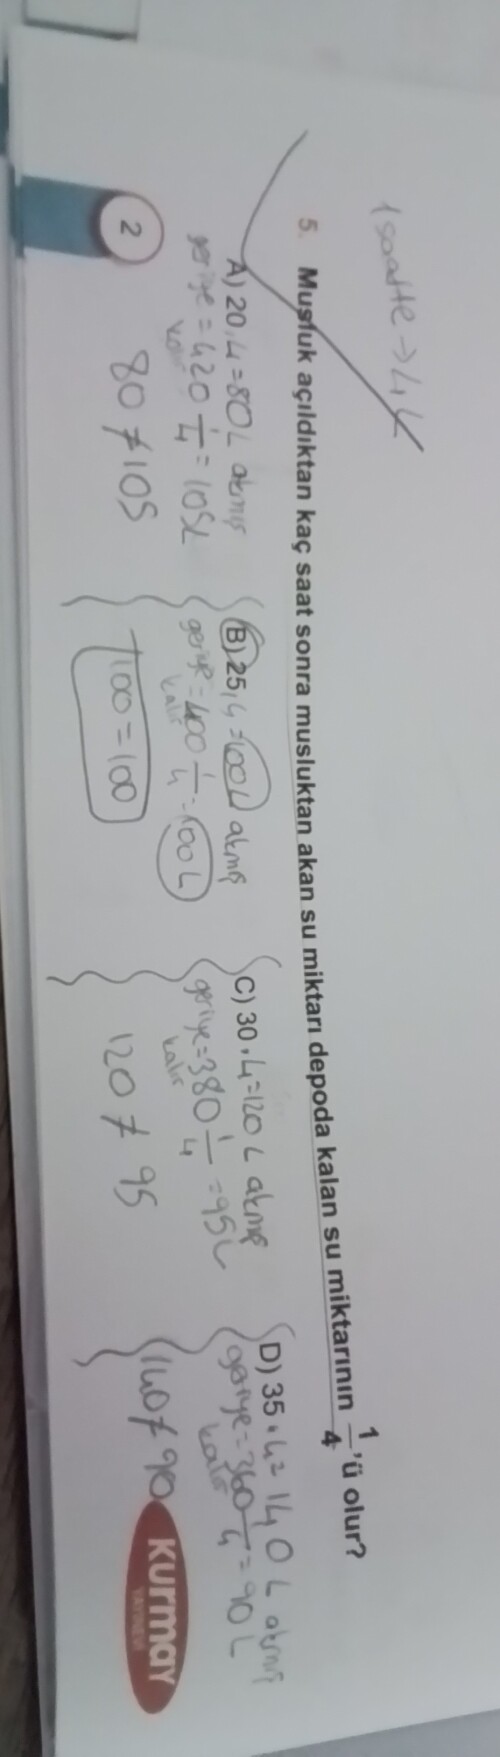 1 saatte → 4 L
5. Musluk açıldıktan kaç saat sonra musluktan akan su miktarı depoda kalan su miktarının 1/4 'ü olur?
A) 20 . 4 = 80 L akmış
geriye = 420 1/4 = 105L
kalır
80 ≠ 105
B) 25 . 4 = 100 L akmış
geriye = 400 1/4 = 100 L
kalır
100 = 100
C) 30 . 4 = 120 L akmış
geriye = 380 1/4 = 95 L
kalır
120 ≠ 95
D) 35 . 4 = 140 L akmış
geriye = 360 1/4 = 90 L
kalır
140 ≠ 90
2
KURMAY
YAYINEVİ